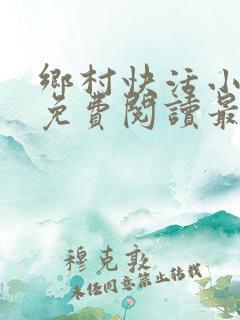 鄉村快活小
免費閱讀最
穆克敦
未经同意禁止转载